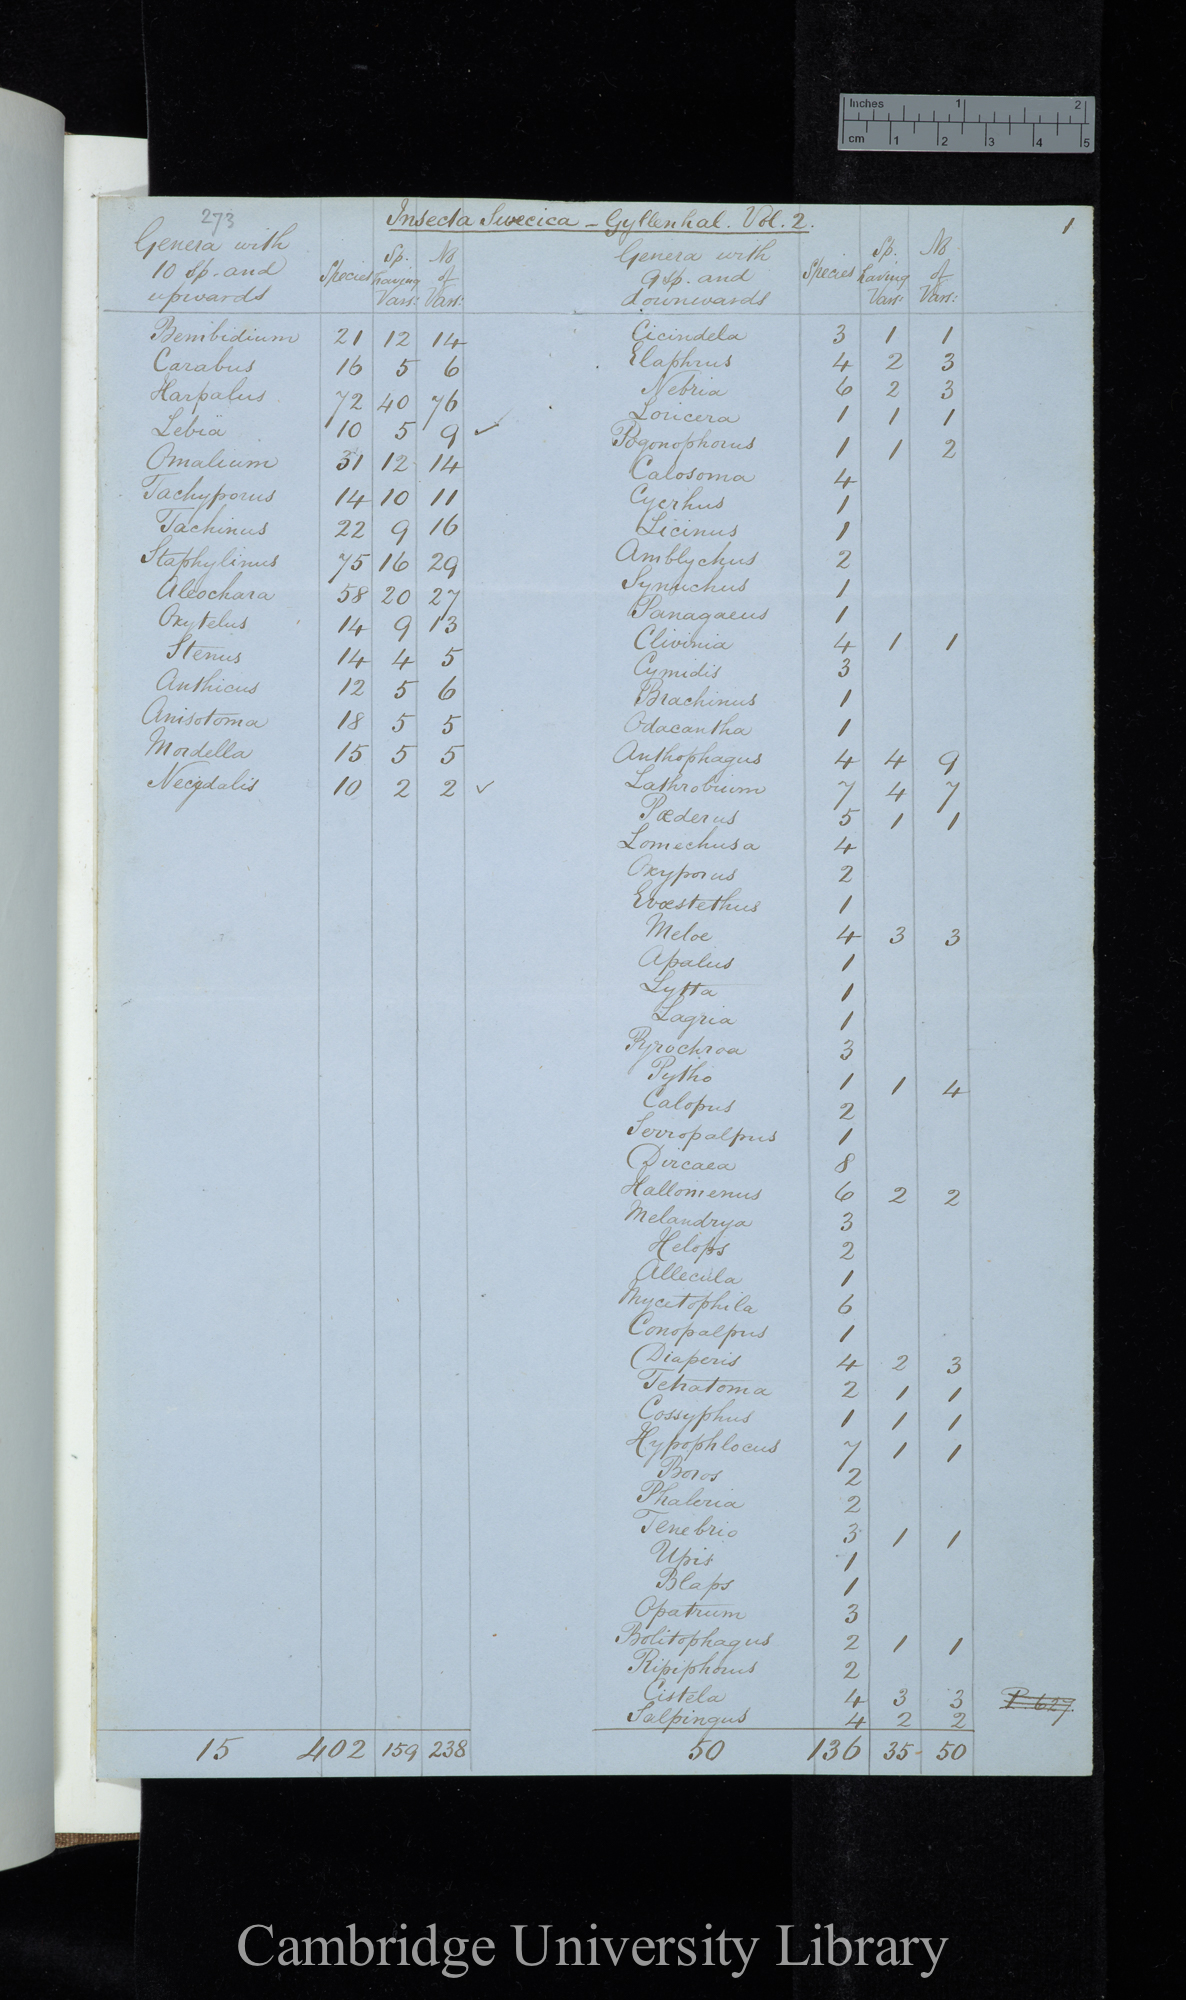 Inches 1 2
cm 1 2 3 4 5
273
Insecta Suecica - Gyllenhal. Vol. 2.
1
Genera with
10 Sp. and
upwards
Species
Sp.
having
Vars:
No
of
Vars:
Bembidium 21 12 14
Carabus 16 5 6
Harpalus 72 40 76
Lebia 10 5 9 ✓
Omalium 31 12 14
Tachyporus 14 10 11
Tachinus 22 9 16
Staphylinus 75 16 29
Aleochara 58 20 27
Oxytelus 14 9 13
Stenus 14 4 5
Anthicus 12 5 6
Anisotoma 18 5 5
Mordella 15 5 5
Necydalis 10 2 2 ✓
15 402 159 238
Genera with
9 sp. and
downwards
Species
Sp.
having
Vars:
No
of
Vars:
Cicindela 3 1 1
Elaphrus 4 2 3
Nebria 6 2 3
Loricera 1 1 1
Pogonophorus 1 1 2
Calosoma 4
Cycrhus 1
Licinus 1
Amblychus 2
Synuchus 1
Panagaeus 1
Clivinia 4 1 1
Cymidis 3
Brachinus 1
Odacantha 1
Anthophagus 4 4 9
Lathrobium 7 4 7
Pæderus 5 1 1
Lomechusa 4
Oxyporus 2
Evæstethus 1
Meloe 4 3 3
Apalus 1
Lytta 1
Lagria 1
Pyrochroa 3
Pytho 1 1 4
Calopus 2
Serropalpus 1
Dircaea 8
Hallomenus 6 2 2
Melandrya 3
Helops 2
Allecula 1
Mycetophila 6
Conopalpus 1
Diaperis 4 2 3
Tetratoma 2 1 1
Cossyphus 1 1 1
Hypophlocus 7 1 1
Boros 2
Phaleria 2
Tenebrio 3 1 1
Upis 1
Blaps 1
Opatrum 3
Bolitophagus 2 1 1
Ripiphorus 2
Cistela 4 3 3
P. 629.
Salpingus 4 2 2
50 136 35- 50
Cambridge University Library